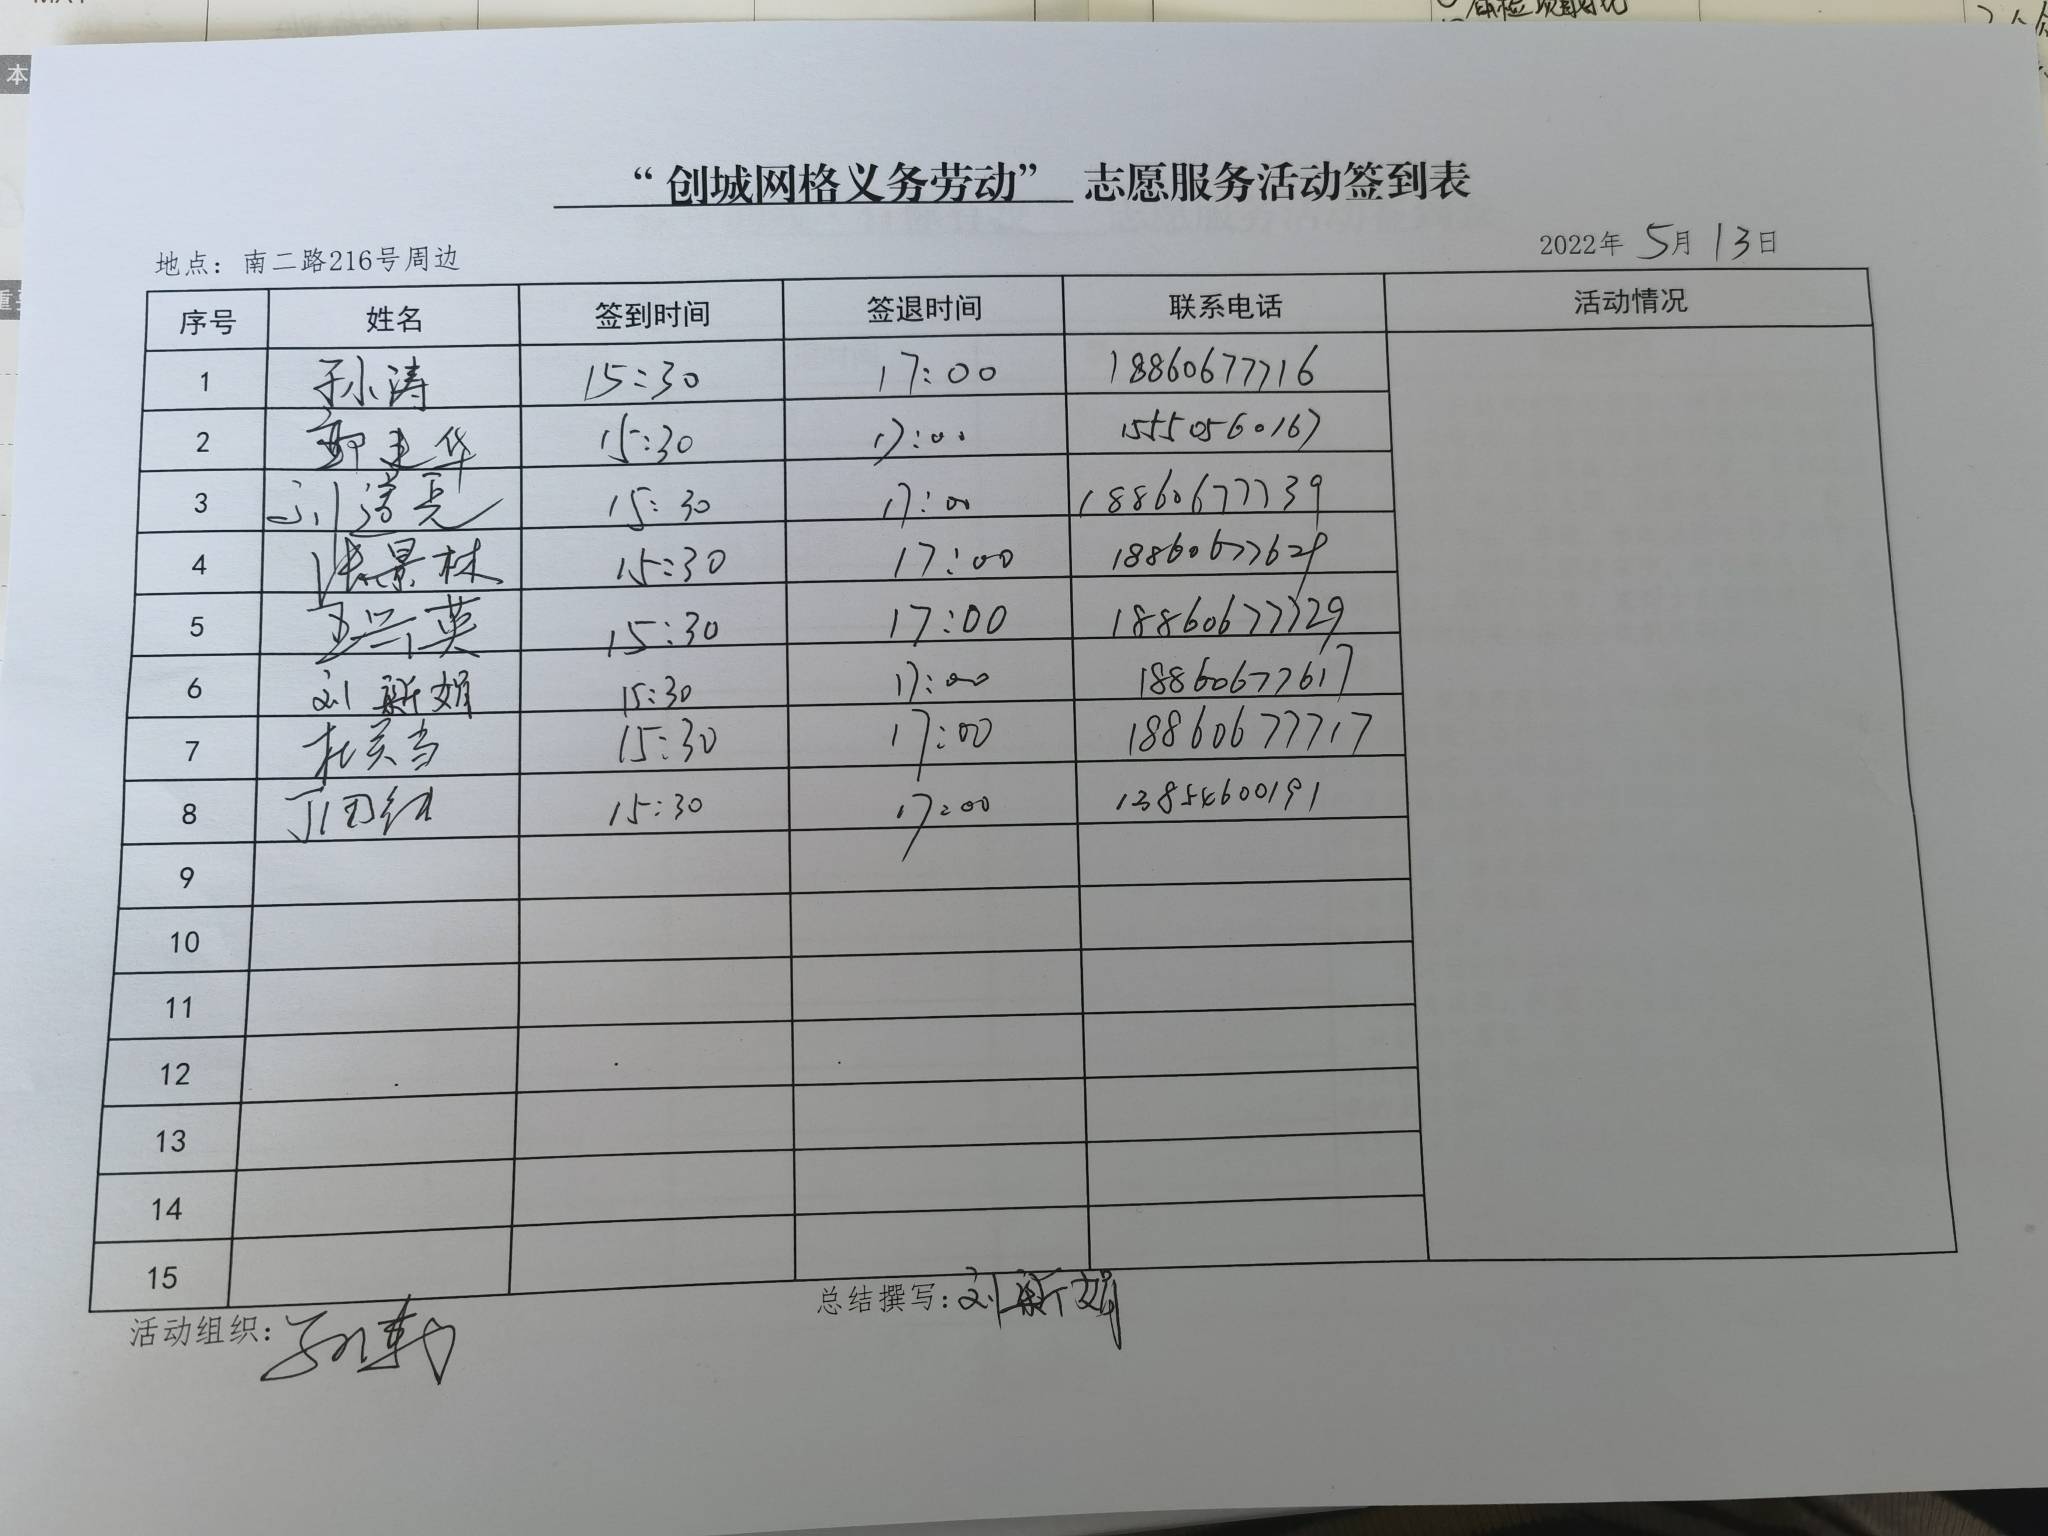 “创城网格义务劳动” 志愿服务活动签到表
地点：南二路216号周边 2022年 5月 13日
序号 姓名 签到时间 签退时间 联系电话 活动情况
1 孙涛 15:30 17:00 18860677716
2 郭建华 15:30 17:00 15550560167
3 刘 亮 15:30 17:00 18860677739
4 张景林 15:30 17:00 18860677629
5 王兴英 15:30 17:00 18860677729
6 刘新娟 15:30 17:00 18860677617
7 杜 15:30 17:00 18860677717
8 15:30 17:00 13854600191
9
10
11
12
13
14
15
活动组织： 总结撰写：刘新娟